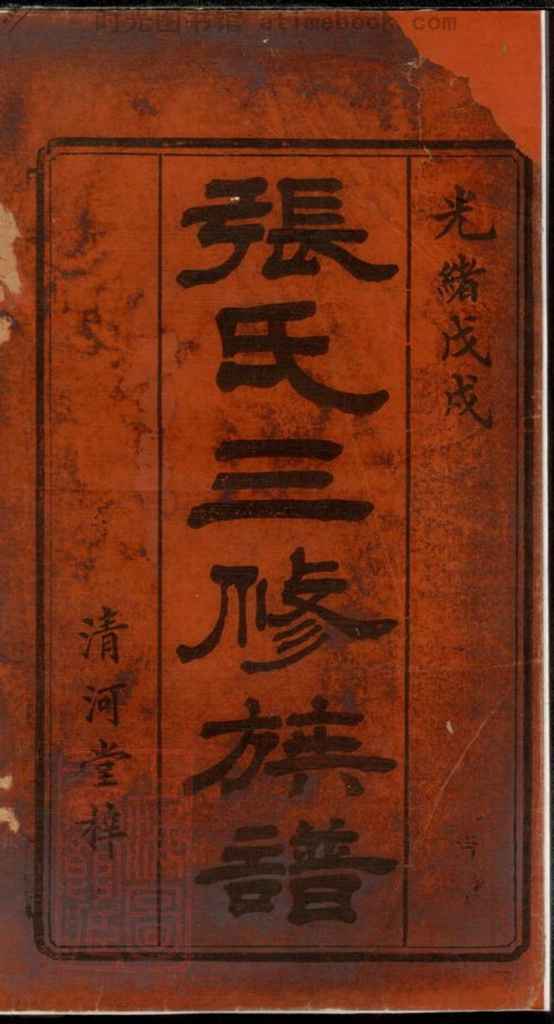 时光图书馆 atimebook.com
光緒戊戌
張氏三修族譜
清河堂梓